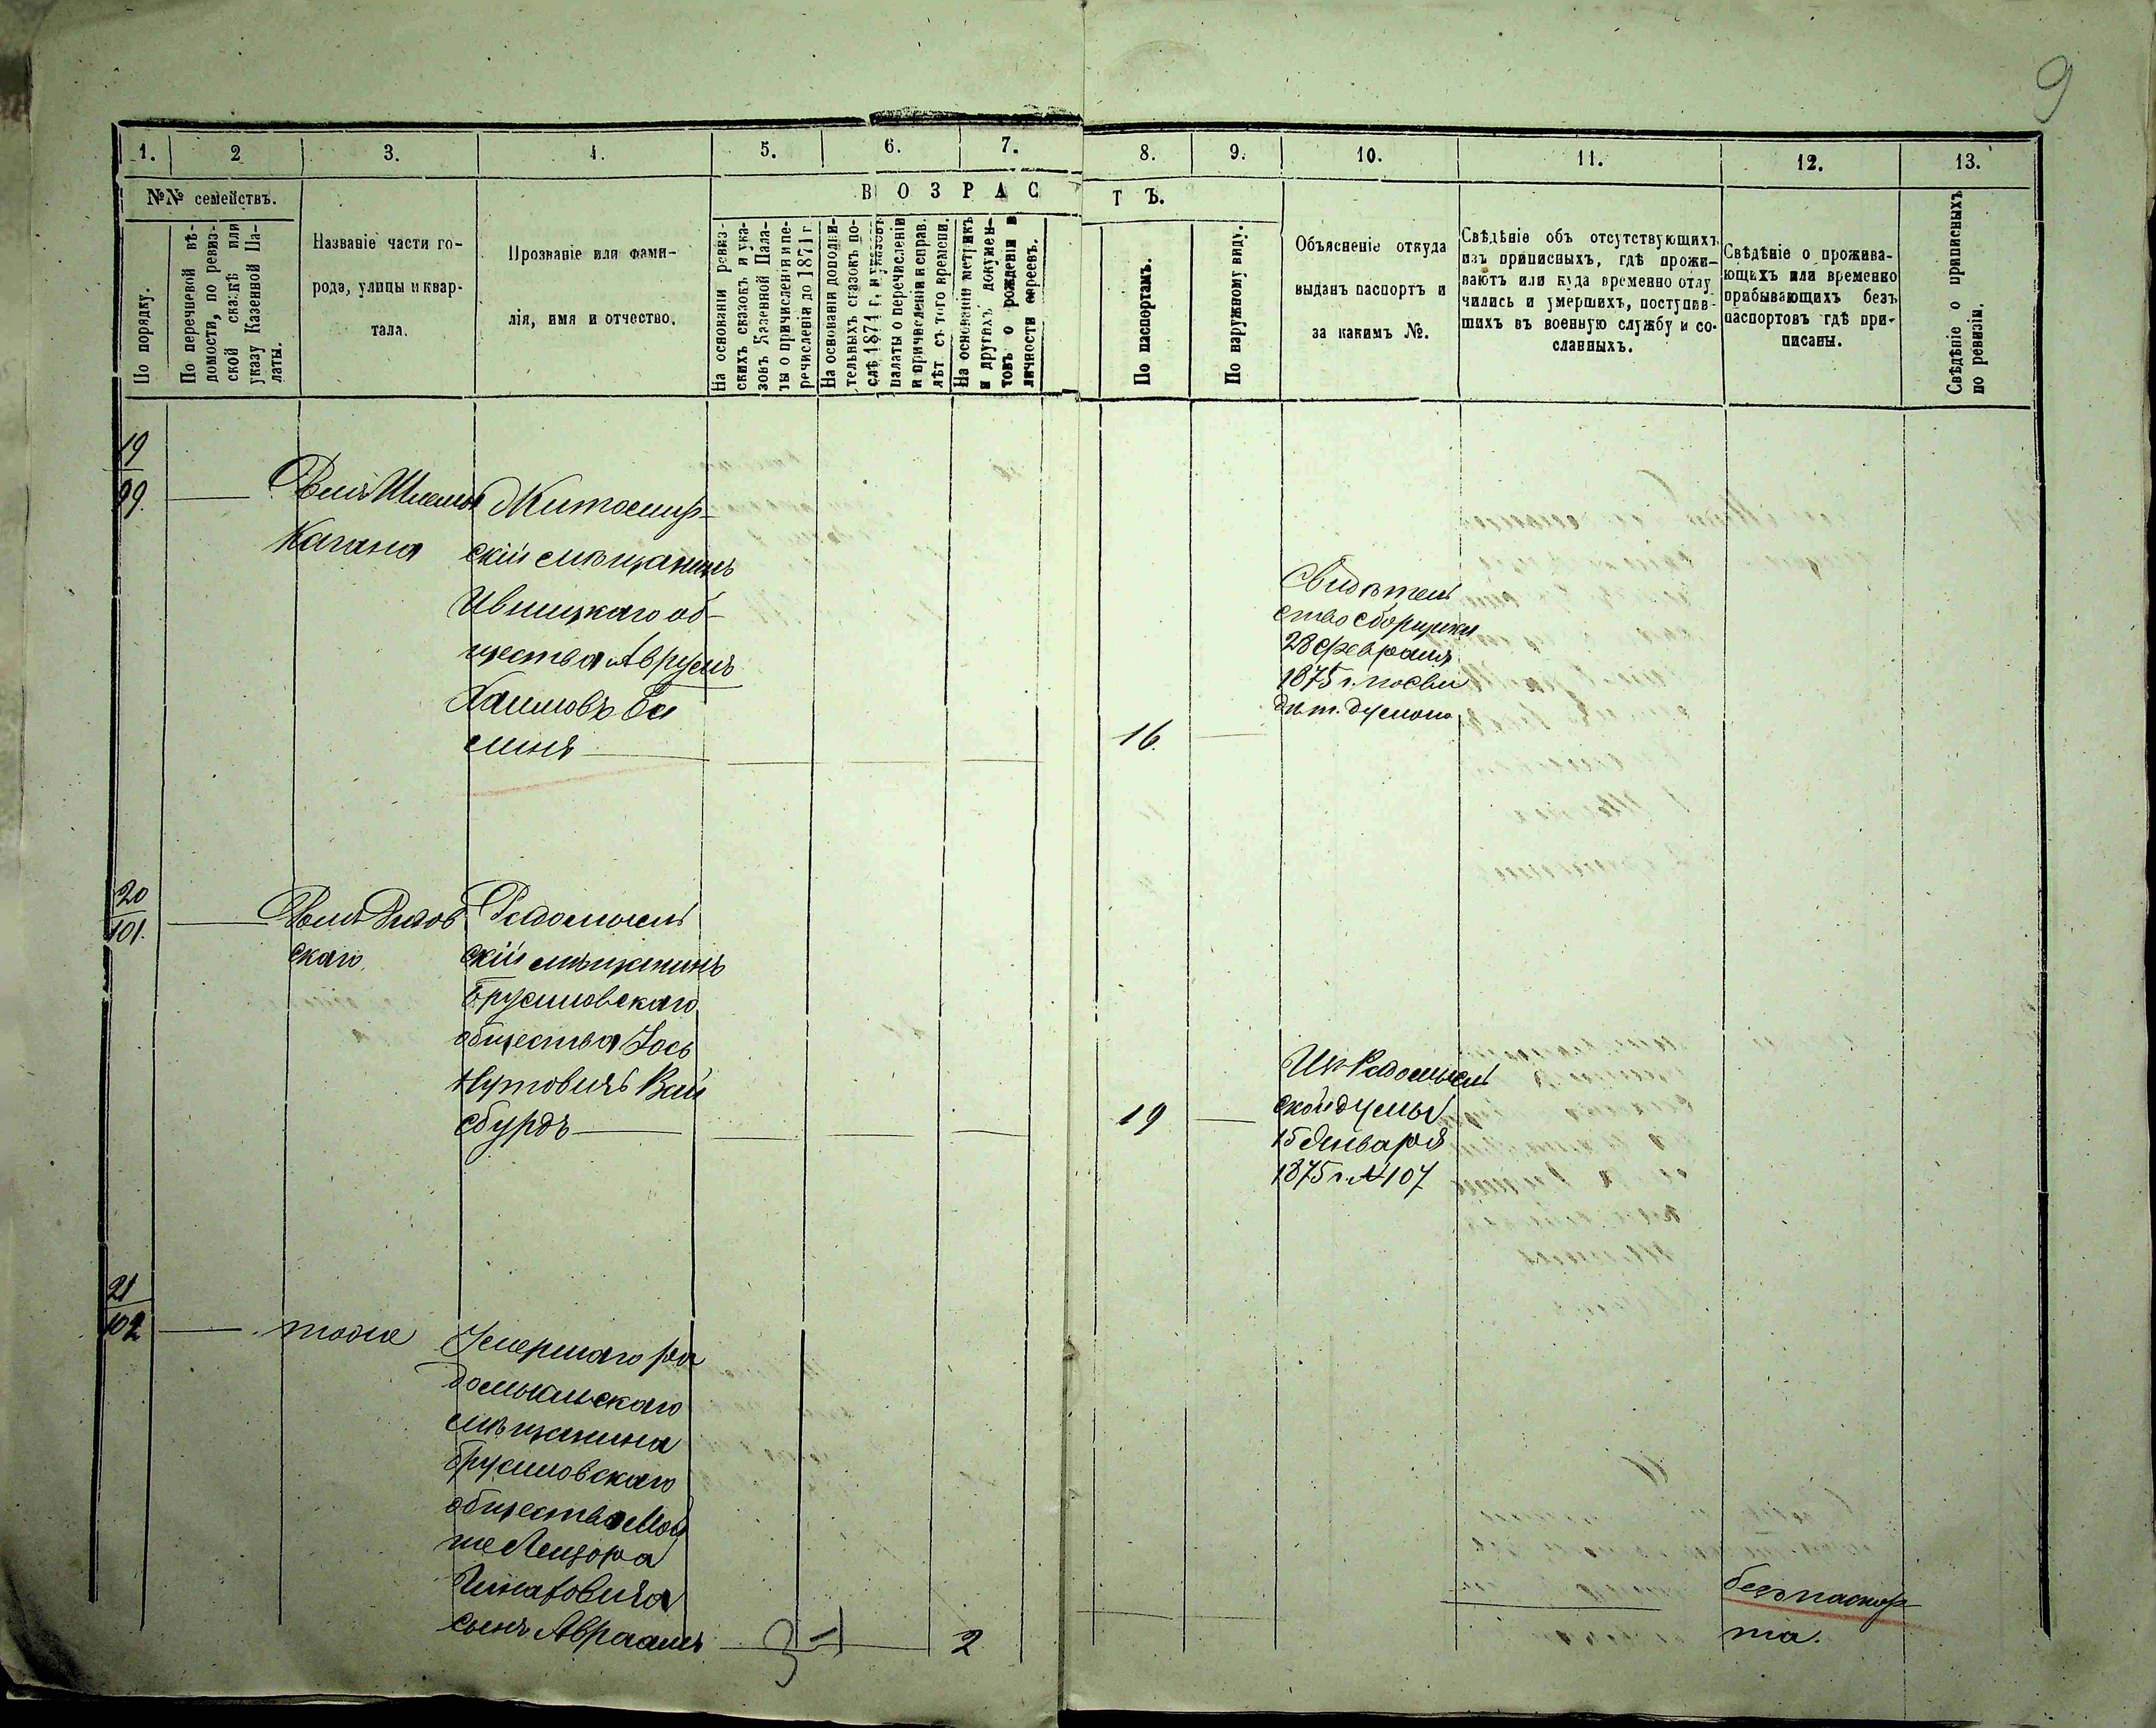 9
1. 2 3. 4. 5. 6. 7. 8. 9. 10. 11. 12. 13.
№№ семействъ.
В О З Р А С Т Ъ.
По порядку.
По перечневой вѣ-
домости, по ревиз-
ской сказкѣ или
указу Казенной Па-
латы.
Названіе части го-
рода, улицы и квар-
тала.
Прозваніе или фами-
лія, имя и отчество.
На основаніи ревиз-
скихъ сказокъ и ука-
зовъ Казенной Пала-
ты о причисленіи и пе-
речисленіи до 1871 г
На основаніи дополни-
тельныхъ сказокъ по-
слѣ 1871 г. и указовъ
палаты о перечисленіи
и причисленіи и справ.
лѣт. съ того времени.
На основаніи метрикъ
и другихъ докумен-
товъ о рожденіи и
личности евреевъ.
По паспортамъ.
По наружному виду.
Объясненіе откуда
выданъ паспортъ и
за какимъ №.
Свѣдѣніе объ отсутствующихъ
изъ приписныхъ, гдѣ прожи-
ваютъ или куда временно отлу
чились и умершихъ, поступив-
шихъ въ военную службу и со-
сланныхъ.
Свѣдѣніе о прожива-
ющихъ или временно
прибывающихъ безъ
паспортовъ гдѣ при-
писаны.
Свѣдѣніе о приписныхъ
по ревизіи.
19
99.
Домъ Шлемы
Кагана
Житомир-
скій мѣщанинъ
Ивницкаго об-
щества Аврумъ
Хаимовъ
16.
Свидѣтель
ство сборщика
28 февраля
1875 г.
20
101.
Домъ
скаго
Радомысль
скій мѣщанинъ
Брусиловскаго
общества Іось
Нутовичъ Вай
сбурдъ
19
Изъ Радомысль
ской думы
15 Января
1875 г. № 107
21
102
тоже
Умершаго ра
домысльскаго
мѣщанина
Брусиловскаго
общества Мой
ше Лейзора
сынъ Авраамъ
3 1 2
безъ паспор
та.